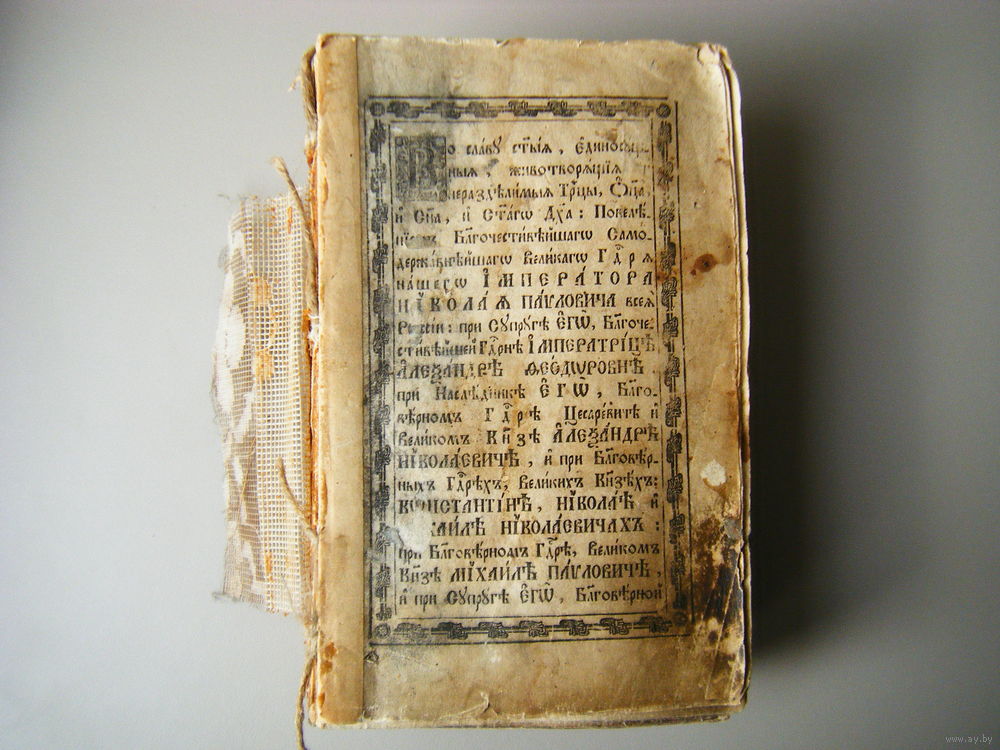 Во славу ст҃ыѧ, единосущ-
ныѧ, животворѧщїѧ
нераздѣлимыѧ Трⷪ҇цы, Ѻц҃а,
и҆ Сн҃а, и҆ Ст҃агѡ Дх҃а: Повелѣ-
нїемъ Бл҃гочестивѣйшагѡ Само-
державнѣйшагѡ Великагѡ Гдⷭ҇рѧ
нашегѡ І҆МПЕРАТОРА
НІКОЛАѦ ПАѴЛОВИЧА всеѧ̀
Рѡссїи: при Сꙋпрꙋгѣ Є҆ГѠ̀, Бл҃гоче-
стивѣйшей Гдⷭ҇рнѣ І҆МПЕРАТРІЦѢ,
А҆ЛЕѮАНДРѢ ѲЕОДѠРОВНѢ.
при Наслѣдникѣ Є҆ГѠ̀, Бл҃го-
вѣрномъ Гдⷭ҇рѣ Цесаревитѣ и҆
Великомъ Кн҃зѣ А҆ЛЕѮАНДРѢ
НІКОЛАЕВИЧѢ, и҆ при Бл҃говѣр-
ныхъ Гдⷭ҇рѣхъ, Великихъ Кн҃зѣхъ:
КѠНСТАНТІНѢ, НІКОЛАѢ и҆
МІХАИЛѢ НІКОЛАЕВИЧАХЪ:
при Бл҃говѣрномъ Гдⷭ҇рѣ, Великомъ
Кн҃зѣ МІХАИЛѢ ПАѴЛОВИЧѢ,
и҆ при Сꙋпрꙋгѣ Є҆ГѠ̀, Бл҃говѣрной
www.ay.by